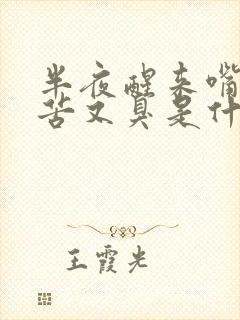 半夜醒来嘴
苦又臭是什
王霞光